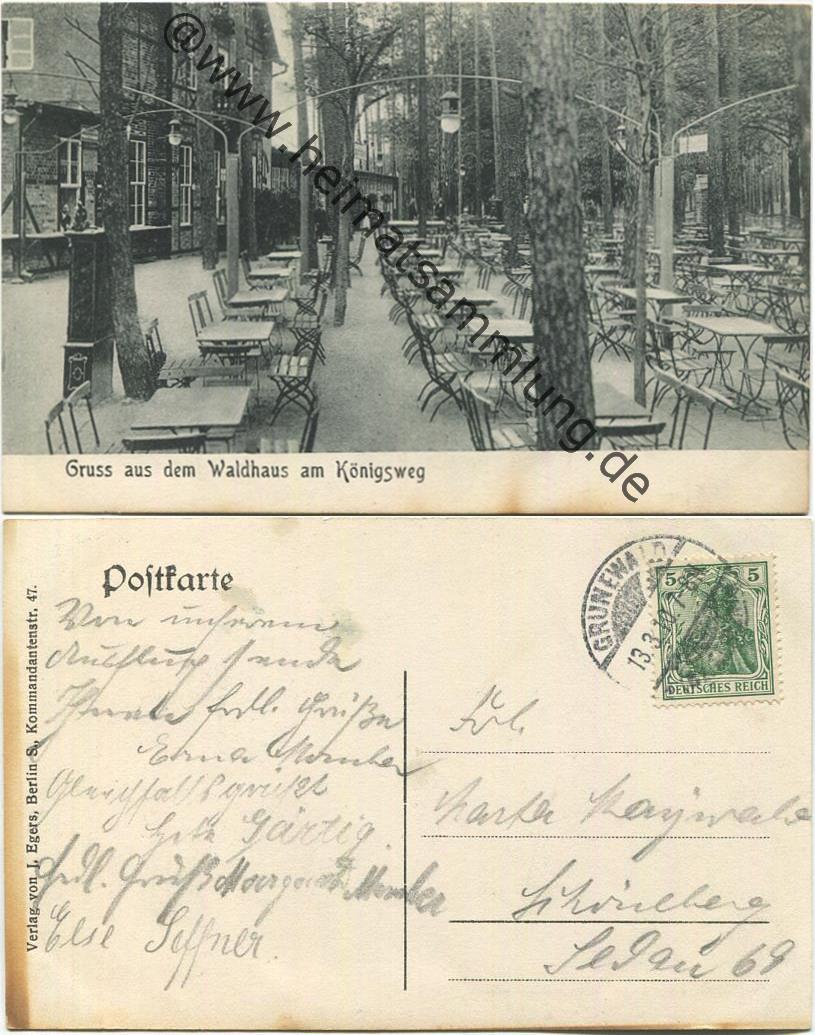 @www.heimatsammlung.de
Gruss aus dem Waldhaus am Königsweg
Postkarte
Verlag von J. Egers, Berlin S., Kommandantenstr. 47.
GRUNEWALD
13.3.10.7-8
5 5
DEUTSCHES REICH
Von unserem
Ausfluge sende
Ihnen frdl. Grüße
Erna
Gleichfalls grüßt
Gärtig.
Frdl. Gruß Margarete
Else Seffner.
Frl.
Marta Maywald
Schöneberg
Sedan 69